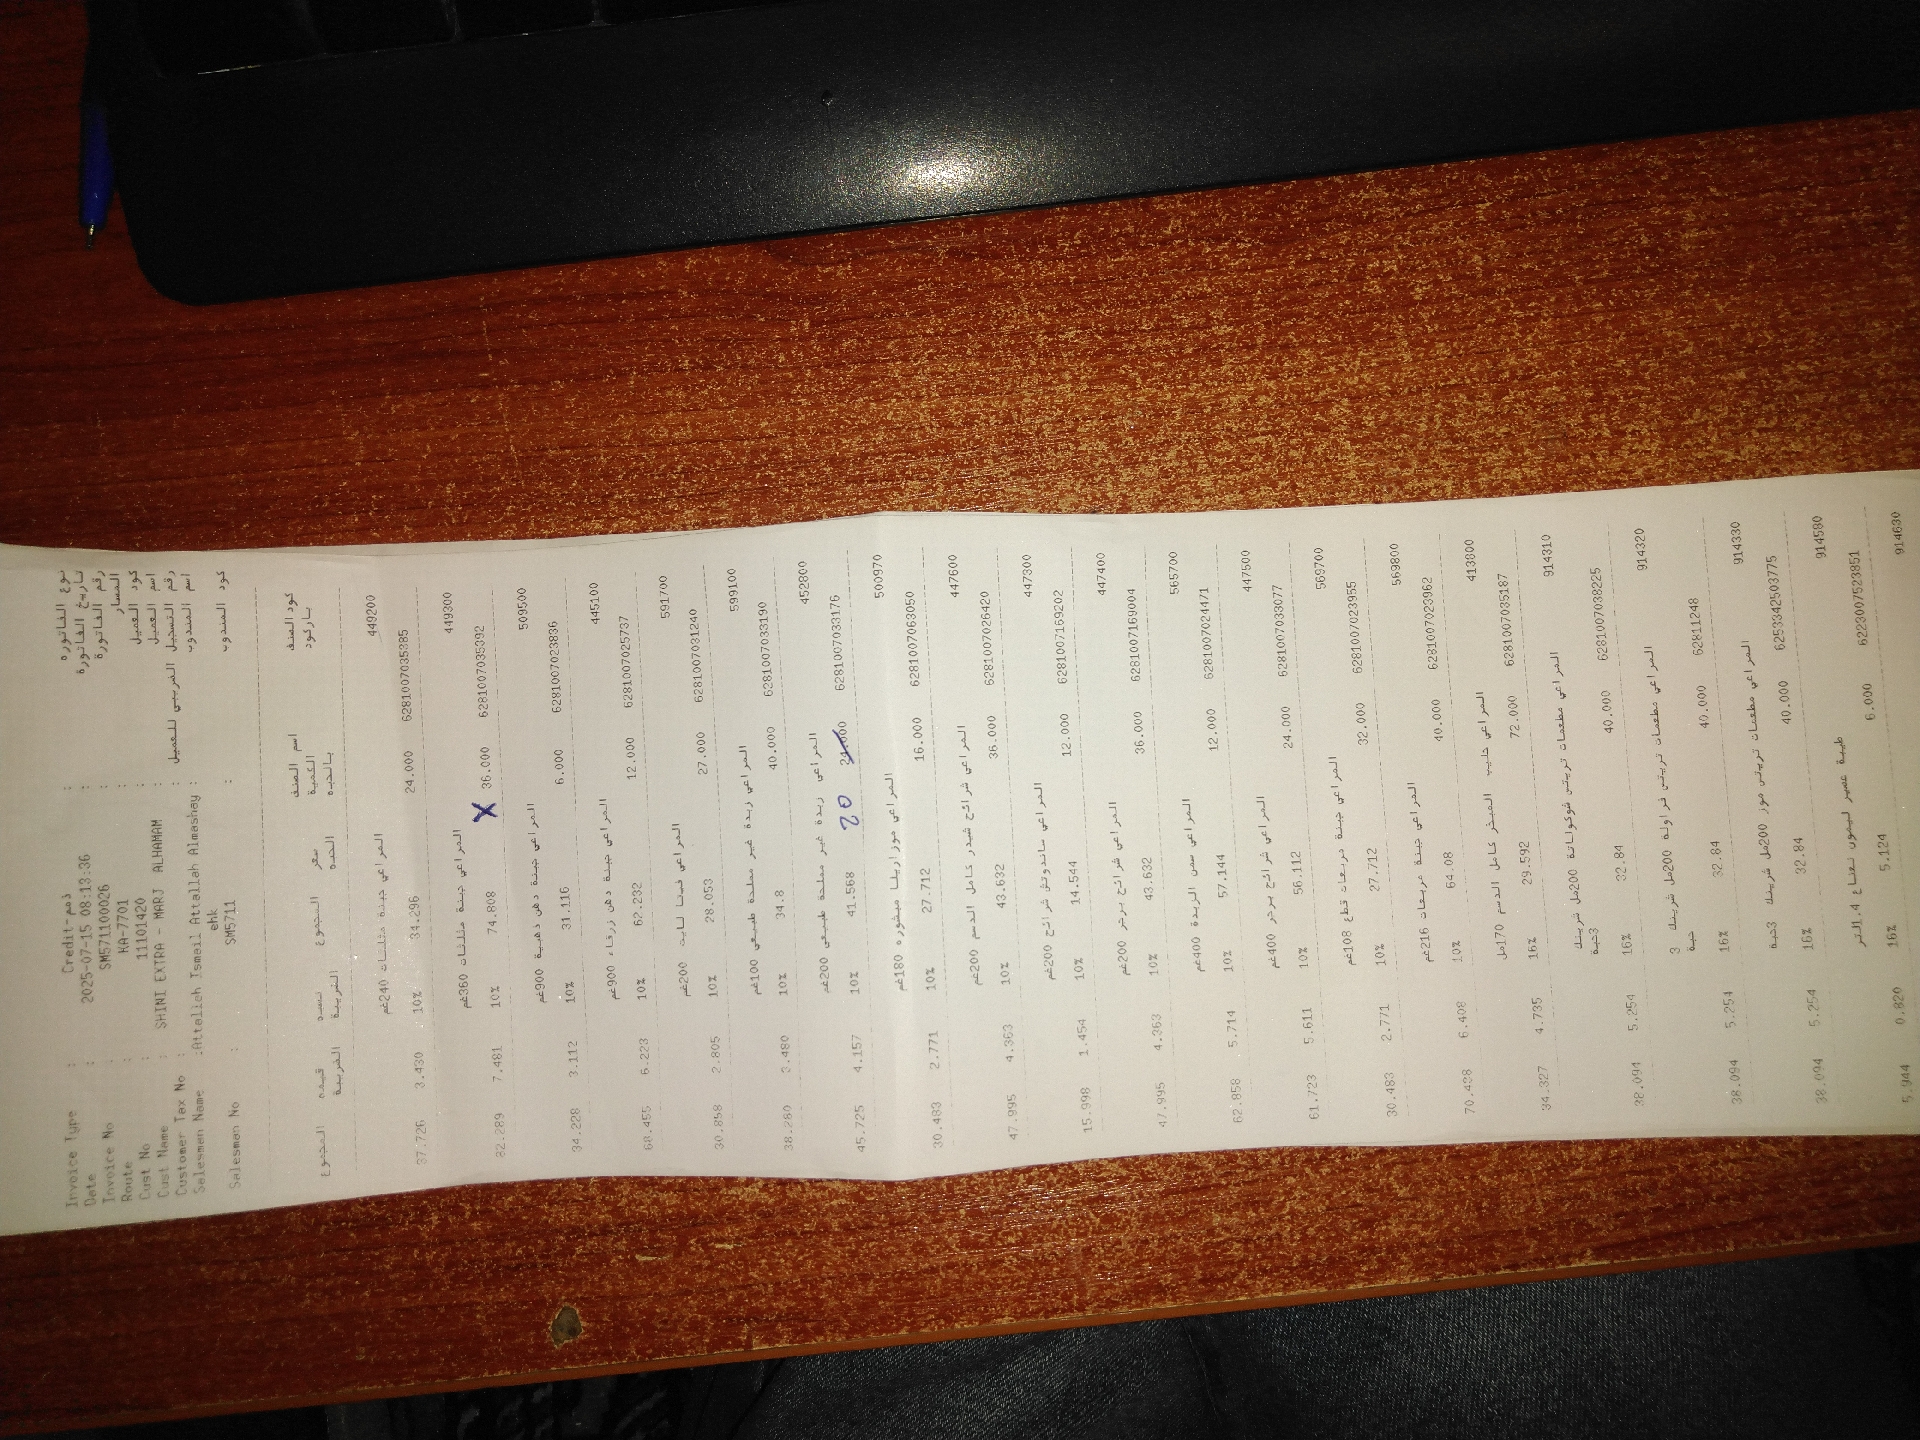 Invoice Type : Credit-ذمم : نوع الفاتورة
Date : 2025-07-15 08:13:36 : تاريخ الفاتورة
Invoice No : SM571100026 : رقم الفاتورة
Route : KA-7701 : المسار
Cust No : 11101420 : كود العميل
Cust Name : SHINI EXTRA - MARJ ALHAMAM : اسم العميل
Customer Tax No : : رقم التسجيل الضريبي للعميل
Salesmen Name :Attallah Ismail Attallah Almashay : اسم المندوب
ehk
Salesman No : SM5711 : كود المندوب
كود الصنف اسم الصنف سعر المجموع نسبه قيمه المجموع
باركود الكمية الحبه الضريبة الضريبة
بالحبه
449200 المراعي جبنة مثلثات 240غم
6281007035385 24.000 34.296 10% 3.430 37.726
449300 المراعي جبنة مثلثات 360غم
6281007035392 36.000 X 74.808 10% 7.481 82.289
509500 المراعي جبنة دهن ذهبية 900غم
6281007023836 6.000 31.116 10% 3.112 34.228
445100 المراعي جبنة دهن زرقاء 900غم
6281007025737 12.000 62.232 10% 6.223 68.455
591700 المراعي فيتا لايت 200غم
6281007031240 27.000 28.053 10% 2.805 30.858
599100 المراعي زبدة غير مملحة طبيعي 100غم
6281007033190 40.000 34.8 10% 3.480 38.280
452800 المراعي زبدة غير مملحة طبيعي 200غم
6281007033176 24.000 20 41.568 10% 4.157 45.725
500970 المراعي موزاريلا مبشوره 180غم
6281007063050 16.000 27.712 10% 2.771 30.483
447600 المراعي شرائح شيدر كامل الدسم 200غم
6281007026420 36.000 43.632 10% 4.363 47.995
447300 المراعي ساندوتش شرائح 200غم
6281007169202 12.000 14.544 10% 1.454 15.998
447400 المراعي شرائح برجر 200غم
6281007169004 36.000 43.632 10% 4.363 47.995
565700 المراعي سمن الزبدة 400غم
6281007024471 12.000 57.144 10% 5.714 62.858
447500 المراعي شرائح برجر 400غم
6281007033077 24.000 56.112 10% 5.611 61.723
569700 المراعي جبنة مربعات قطع 108غم
6281007023955 32.000 27.712 10% 2.771 30.483
569800 المراعي جبنة مربعات 216غم
6281007023962 40.000 64.08 10% 6.408 70.488
413800 المراعي حليب المبخر كامل الدسم 170مل
6281007035187 72.000 29.592 16% 4.735 34.327
914310 المراعي مطعمات تريتس شوكولاتة 200مل شرينك
3حبة
6281007038225 40.000 32.84 16% 5.254 38.094
914320 المراعي مطعمات تريتس فراولة 200مل شرينك 3
حبة
62811248 40.000 32.84 16% 5.254 38.094
914330 المراعي مطعمات تريتس موز 200مل شرينك 3حبة
6253342503775 40.000 32.84 16% 5.254 38.094
914580 طيبة عصير ليمون نعناع 1.4لتر
6223007523851 6.000 5.124 16% 0.820 5.944
914630